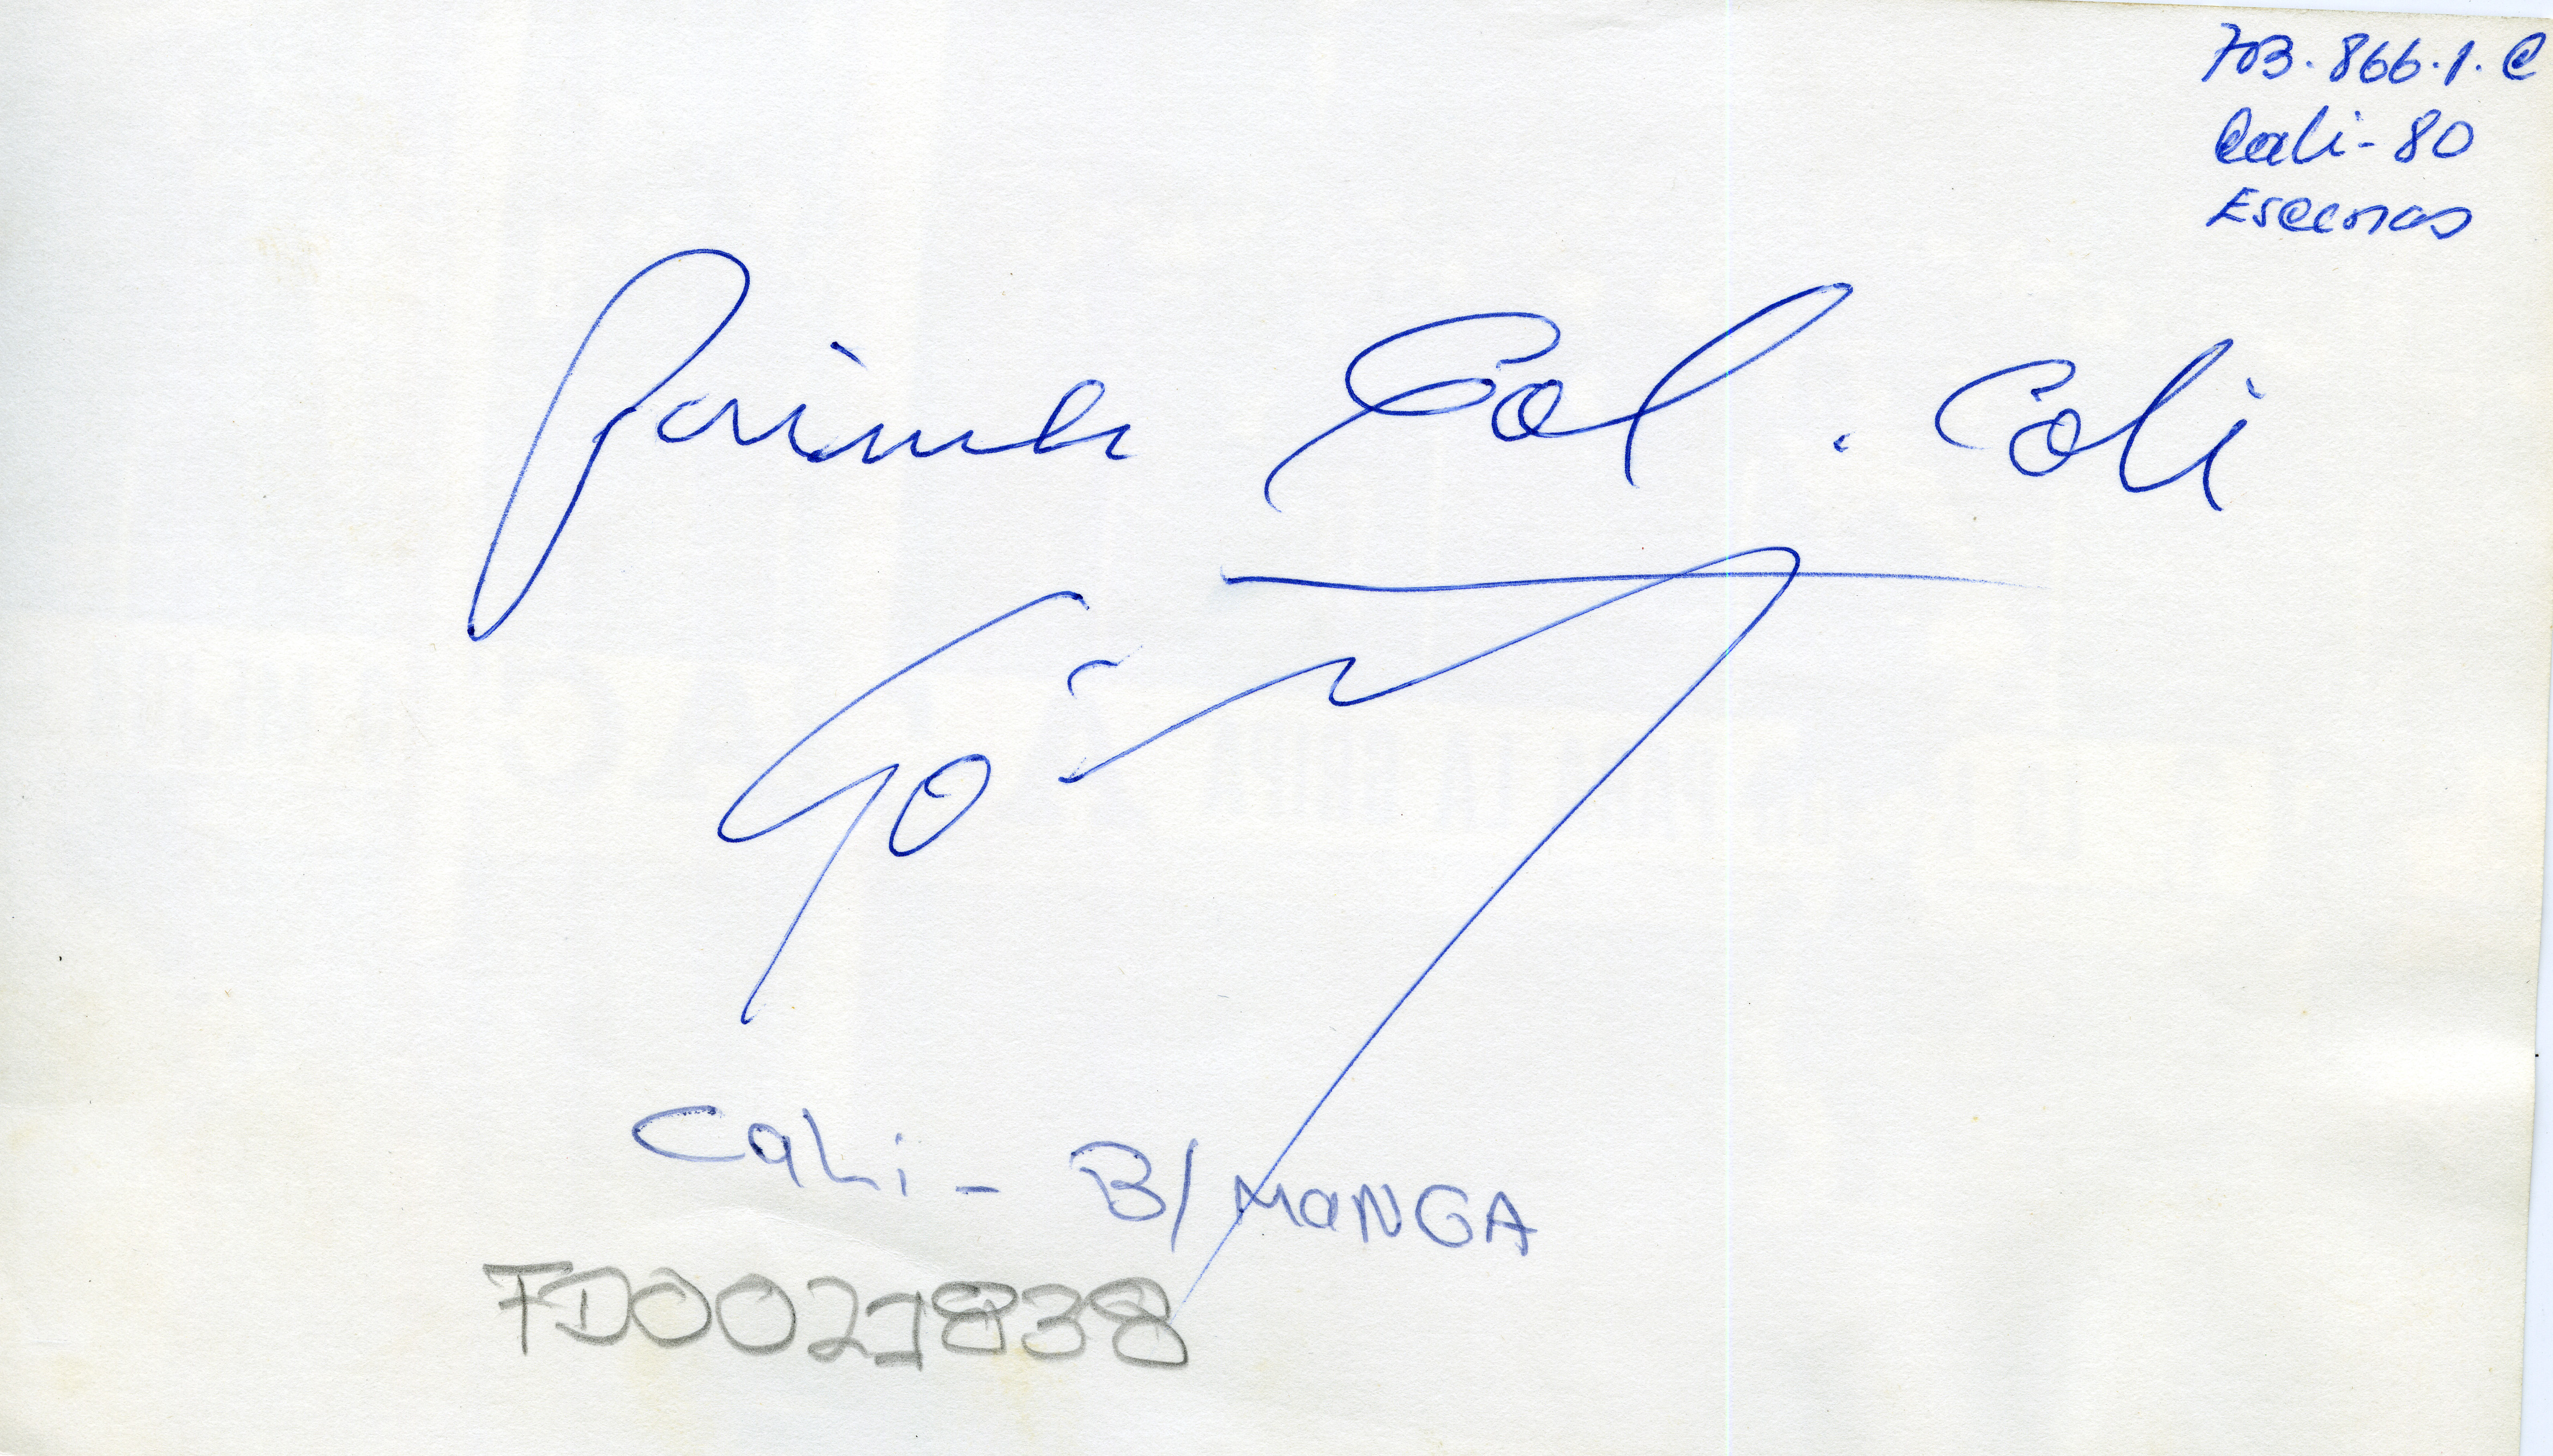 703.866.1.C
Cali-80
Escenas
Primer Gol. Cali
CaLi - B/MANGA
FD0021838